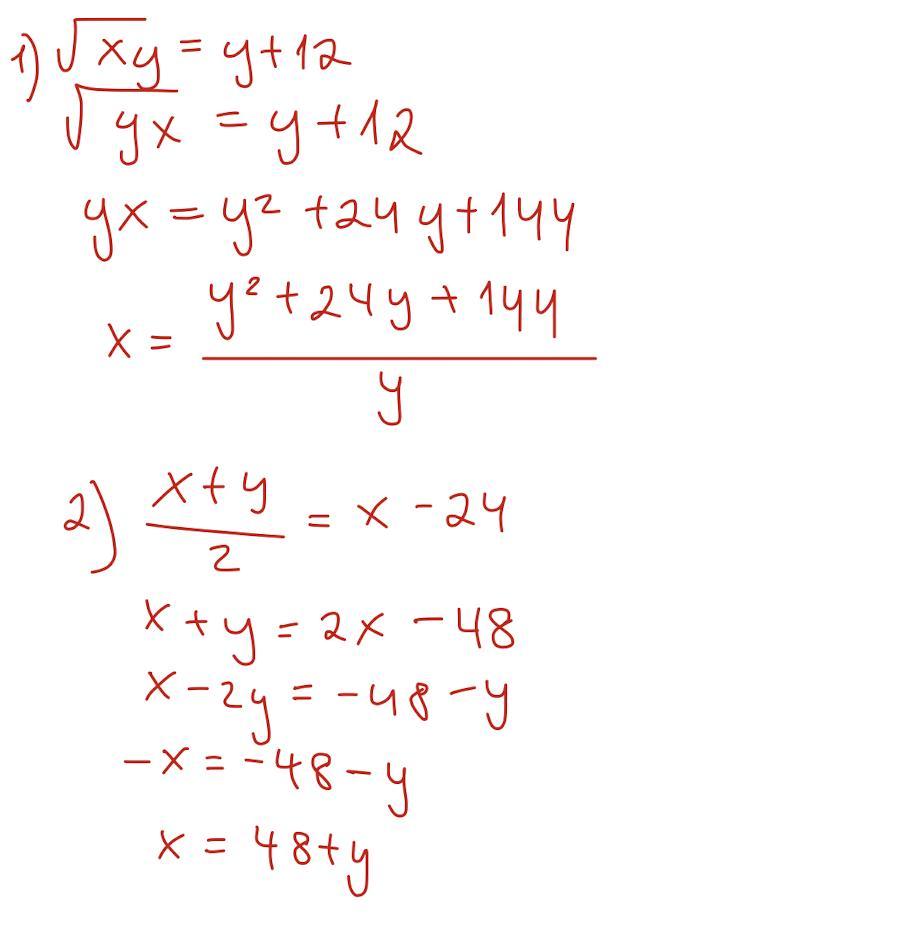 1) √xy = y+12
√yx = y+12
yx = y² +24y+144
x = (y²+24y+144)/y
2) (x+y)/2 = x -24
x+y = 2x -48
x-2y = -48-y
-x = -48-y
x = 48+y